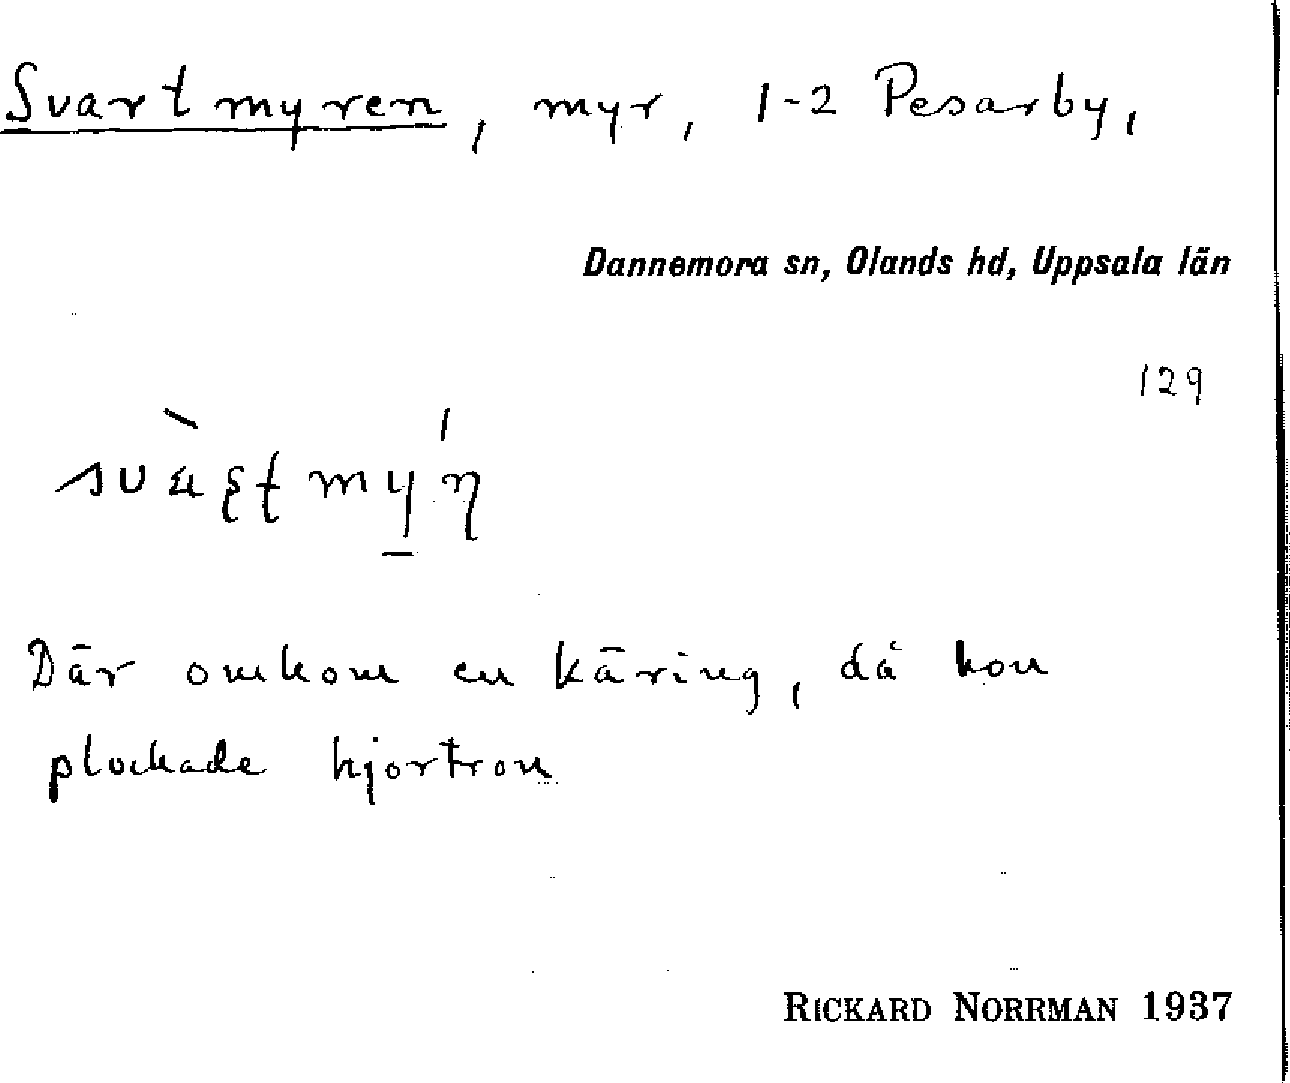 Svartmyren, myr, 1-2 Pesarby,
Dannemora sn, Olands hd, Uppsala län
129
Där omkom en käring, då hon
plockade hjortron
RICKARD NORRMAN 1937